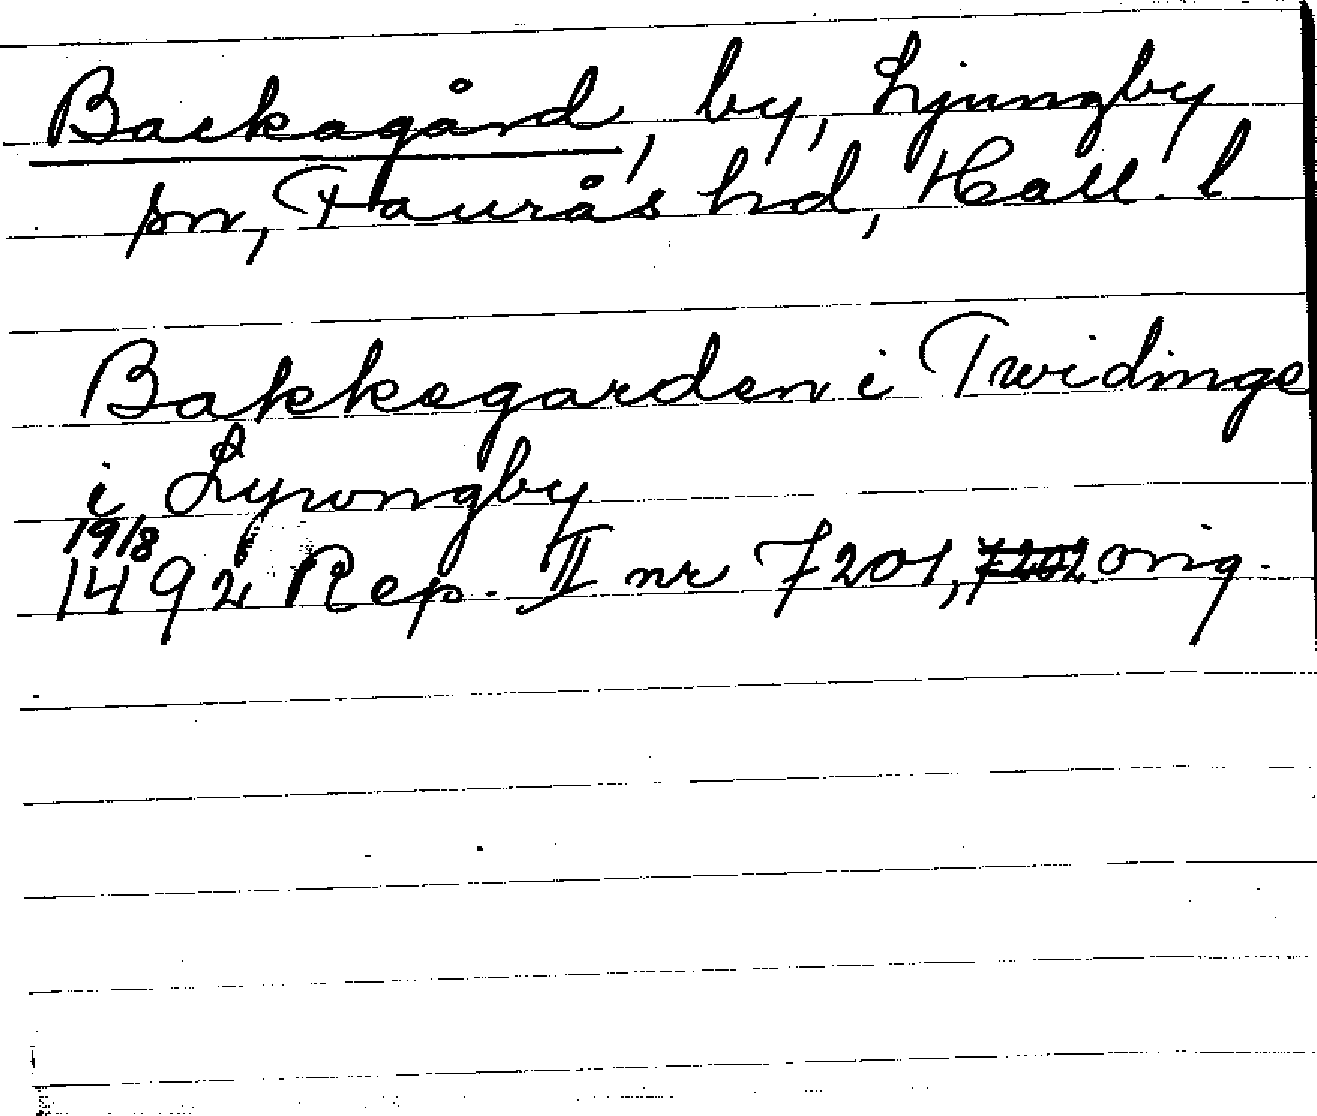 Backagård, by, Ljungby
sn, Faurås hd, Hall. l
Bakkegarden i Twidinge
i Lywngby
19/8
1492 Rep. II nr 7201, orig.